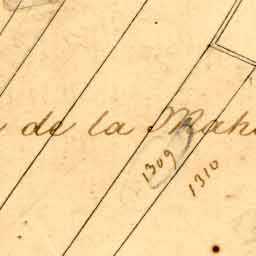 de la Mah
1309
1310